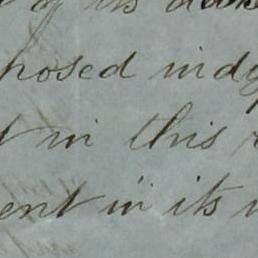 of its
posed indg
t in this
ent in its